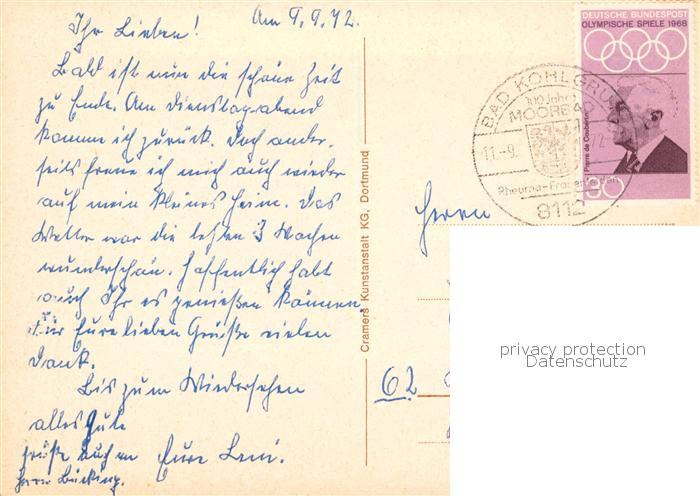 Am 9.9.72.
Ihr Lieben!
Bald ist nun die schöne Zeit
zu Ende. Am Dienstagabend
komme ich zurück. Doch ander-
seits freue ich mich auch wieder
auf mein kleines Heim. Das
Wetter war die letzten 3 Wochen
wunderschön. Hoffentlich habt
auch Ihr es genießen können.
Für Eure lieben Grüße vielen
Dank.
Bis zum Wiedersehen
alles Gute
Grüße auch an Eure Leni.
Herrn Bücking.
Cramers Kunstanstalt KG, Dortmund
DEUTSCHE BUNDESPOST
OLYMPISCHE SPIELE 1968
Pierre de Coubertin
30
BAD KOHLGRUB
100 Jahr
MOORBAD
11.-9.
Rheuma-Frauenleiden
8112
Herrn
62
privacy protection
Datenschutz